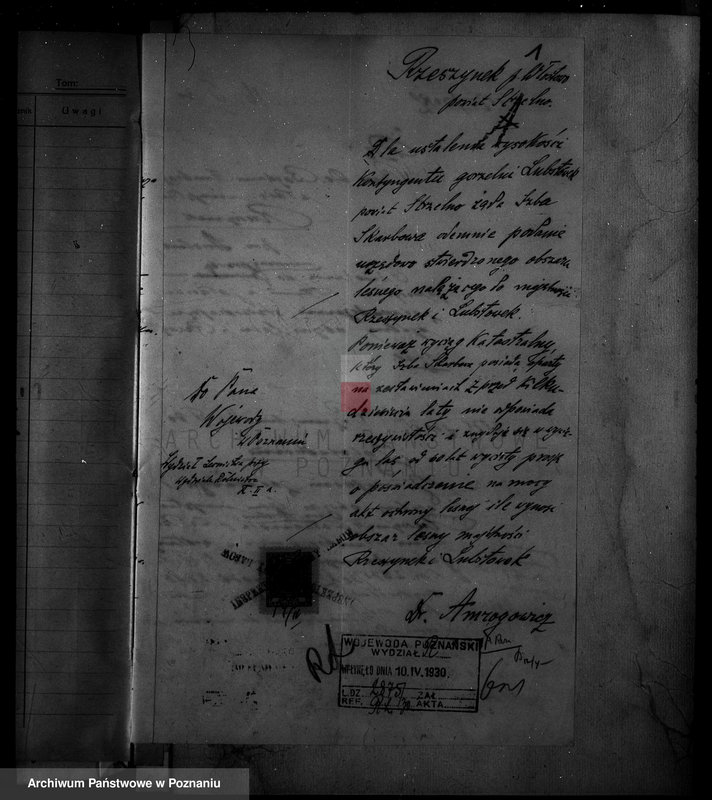 Tom:
Uwagi
Rzeszynek p. Włostowo
powiat Strzelno.
Dla ustalenia wysokości
kontyngentu gorzelni Lubstówek
powiat Strzelno żąda Izba
Skarbowa odemnie podanie
urzędowo stwierdzonego obszaru
leśnego należącego do majętności
Rzeszynek i Lubstówek.
Ponieważ wyciąg Katastralny
który Izba Skarbowa posiada, oparty
na zestawieniach z przed kilku-
dziesięciu laty nie odpowiada
rzeczywistości i znajduje się w
las od lat wycięty proszę
o poświadczenie na mocy
akt ochrony lasów ile wynosi
obszar leśny majętności
Rzeszynek i Lubstówek
Dr. Amrogowicz
Do Pana
Wojewody
w Poznaniu
Wydział przy
Wydziale Rolnictwa
ARCHIWUM PAŃSTWOWE
W POZNANIU
WOJEWODA POZNAŃSKI
WYDZIAŁ R
WPŁYNĘŁO DNIA 10. IV. 1930.
L.DZ. ZAŁ.
REF. AKTA
Archiwum Państwowe w Poznaniu